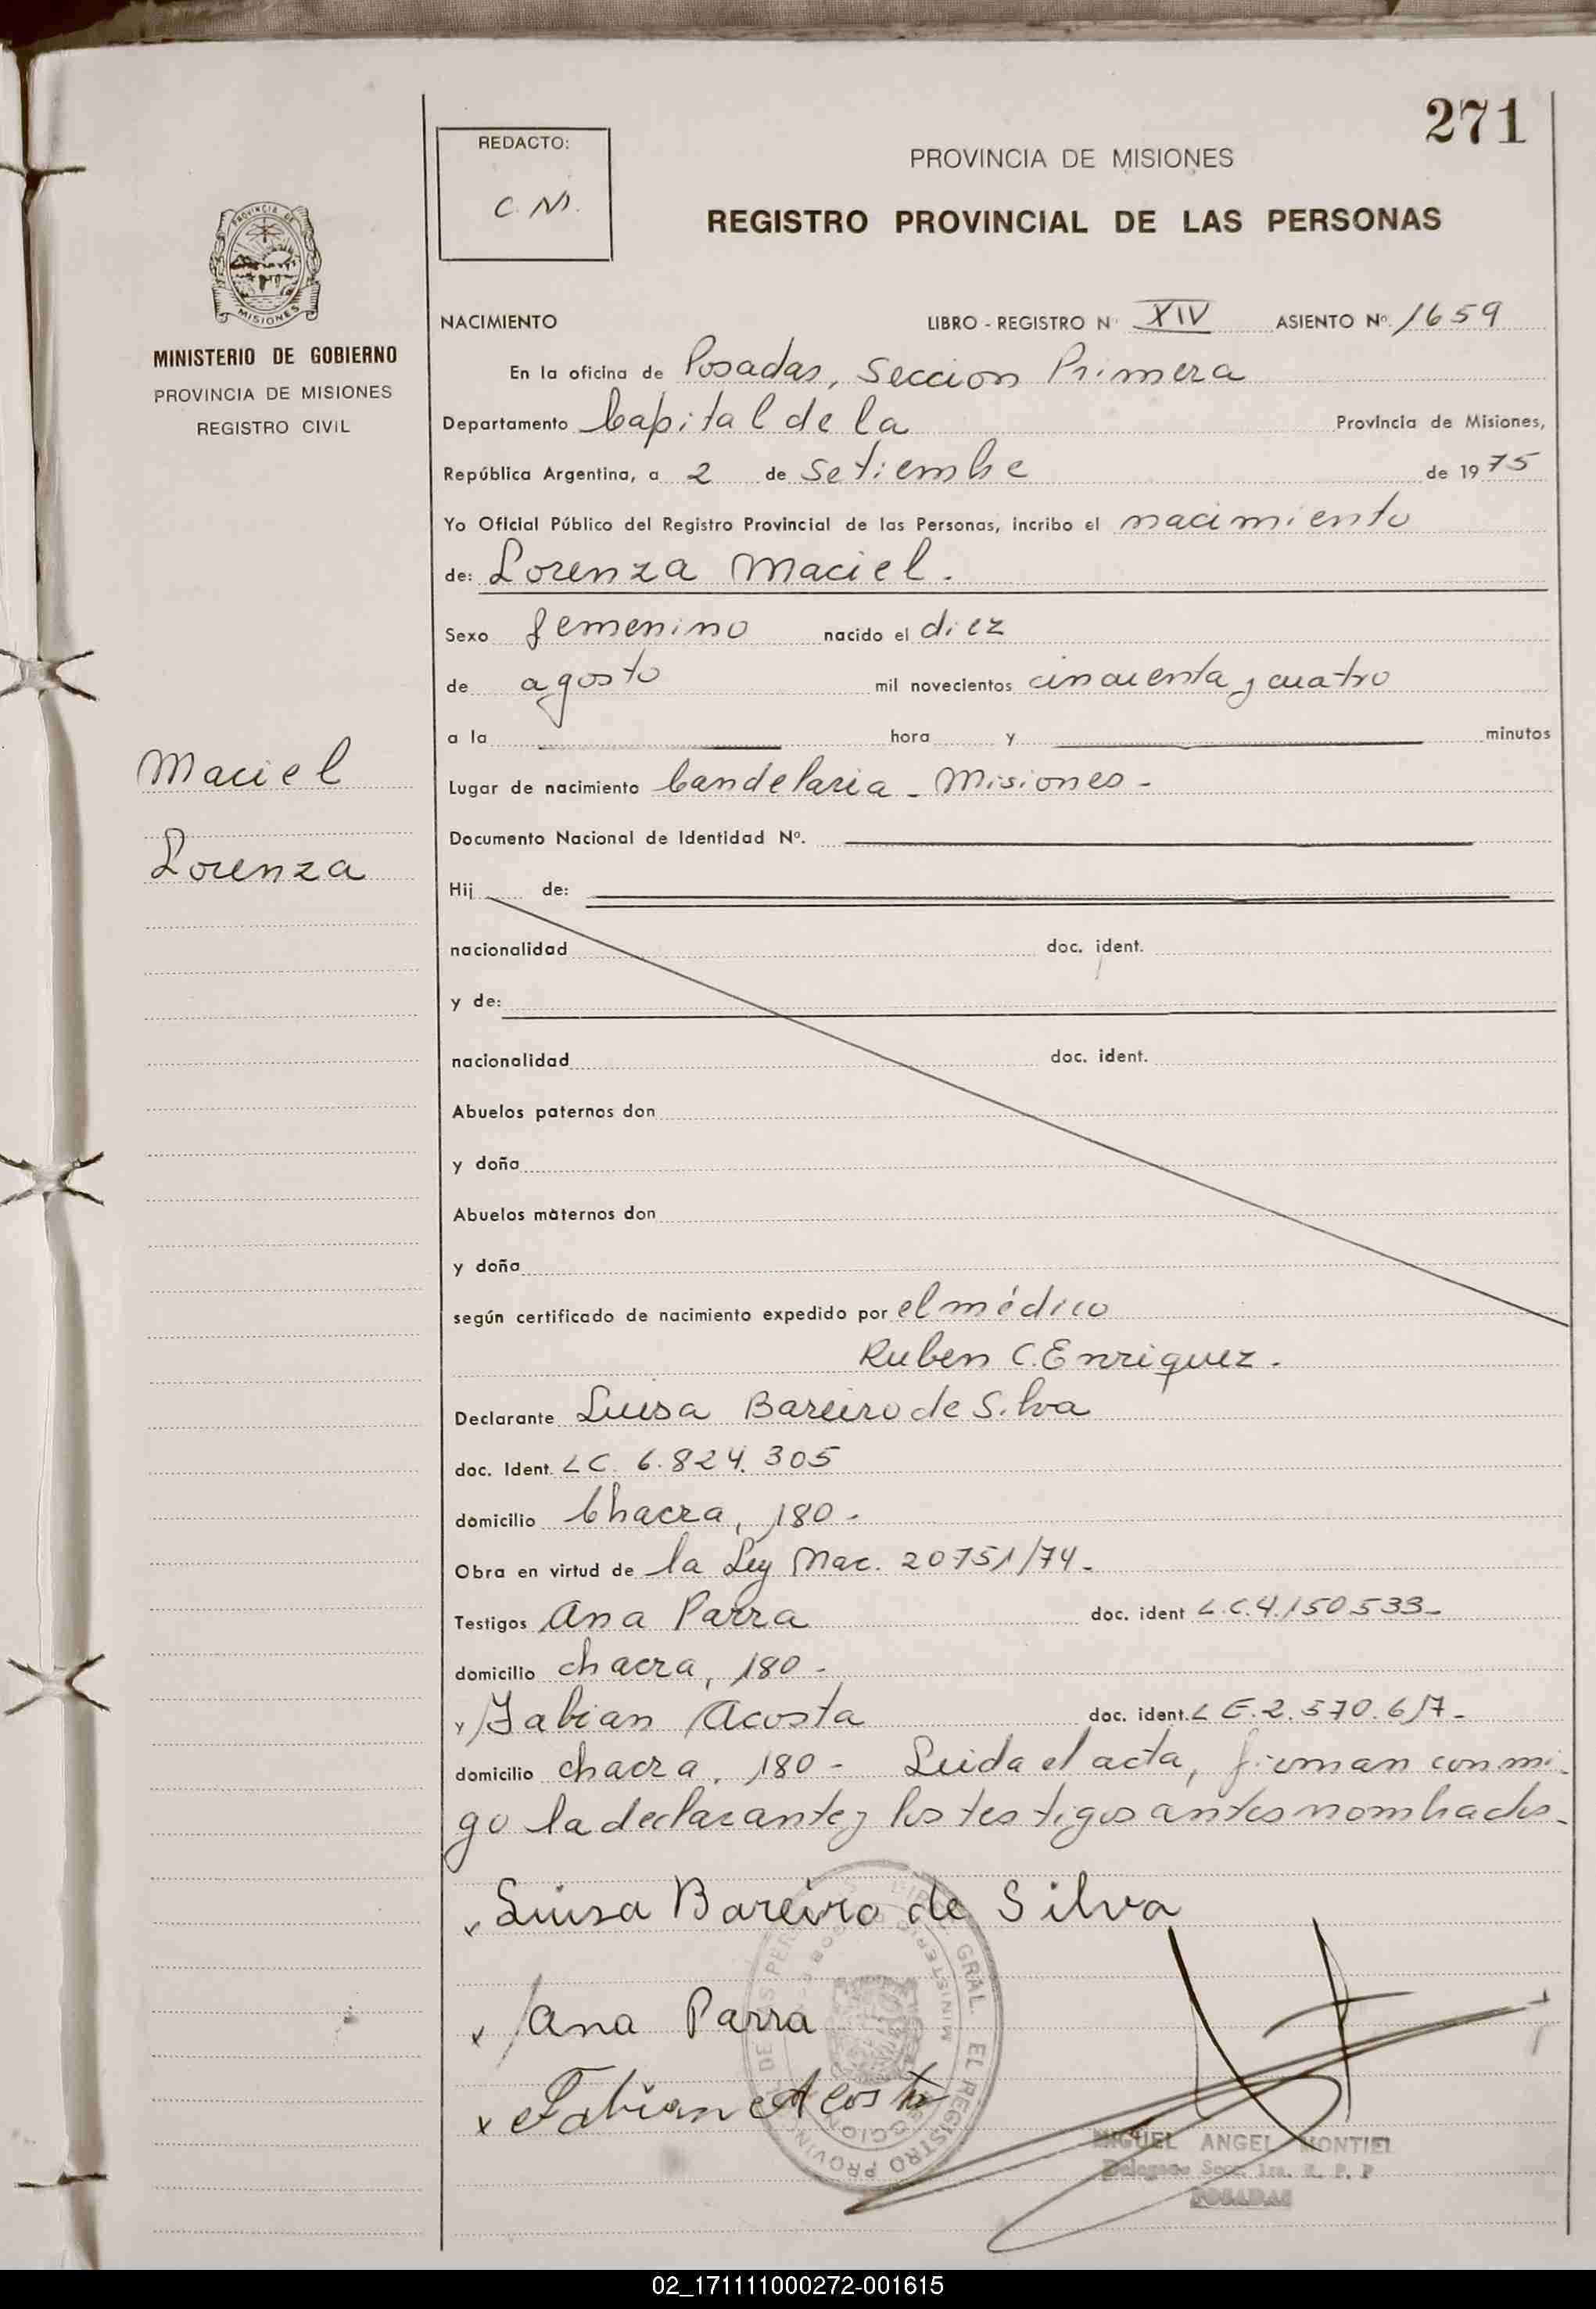 271
REDACTO:
C. M.
PROVINCIA DE MISIONES
REGISTRO PROVINCIAL DE LAS PERSONAS
PROVINCIA DE
MISIONES
MINISTERIO DE GOBIERNO
PROVINCIA DE MISIONES
REGISTRO CIVIL
NACIMIENTO LIBRO - REGISTRO Nº XIV ASIENTO Nº. 1659
En la oficina de Posadas, Seccion Primera
Departamento Capital de la Provincia de Misiones,
República Argentina, a 2 de Setiembre de 1975
Yo Oficial Público del Registro Provincial de las Personas, incribo el nacimiento
de: Lorenza Maciel.
Sexo femenino nacido el diez
de agosto mil novecientos cincuenta y cuatro
a la hora y minutos
Maciel
Lugar de nacimiento Candelaria - Misiones -
Documento Nacional de Identidad Nº.
Lorenza
Hij de:
nacionalidad doc. ident.
y de:
nacionalidad doc. ident.
Abuelos paternos don
y doña
Abuelos maternos don
y doña
según certificado de nacimiento expedido por el médico
Ruben C. Enriquez.
Declarante Luisa Bareiro de Silva
doc. Ident. LC. 6.824.305
domicilio Chacra, 180 -
Obra en virtud de la Ley Nac. 20751/74 -
Testigos Ana Parra doc. ident L.C. 4.150.533 -
domicilio chacra, 180 -
y Fabian Acosta doc. ident. L E. 2.570.617 -
domicilio chacra, 180 - Leida el acta, firman conmi-
go la declarante y los testigos antes nombrados -
x Luisa Bareiro de Silva
x Ana Parra
x Fabian Acosta
MIGUEL ANGEL MONTIEL
Delegado Secc. 1ra. R. P. P
POSADAS
02_171111000272-001615